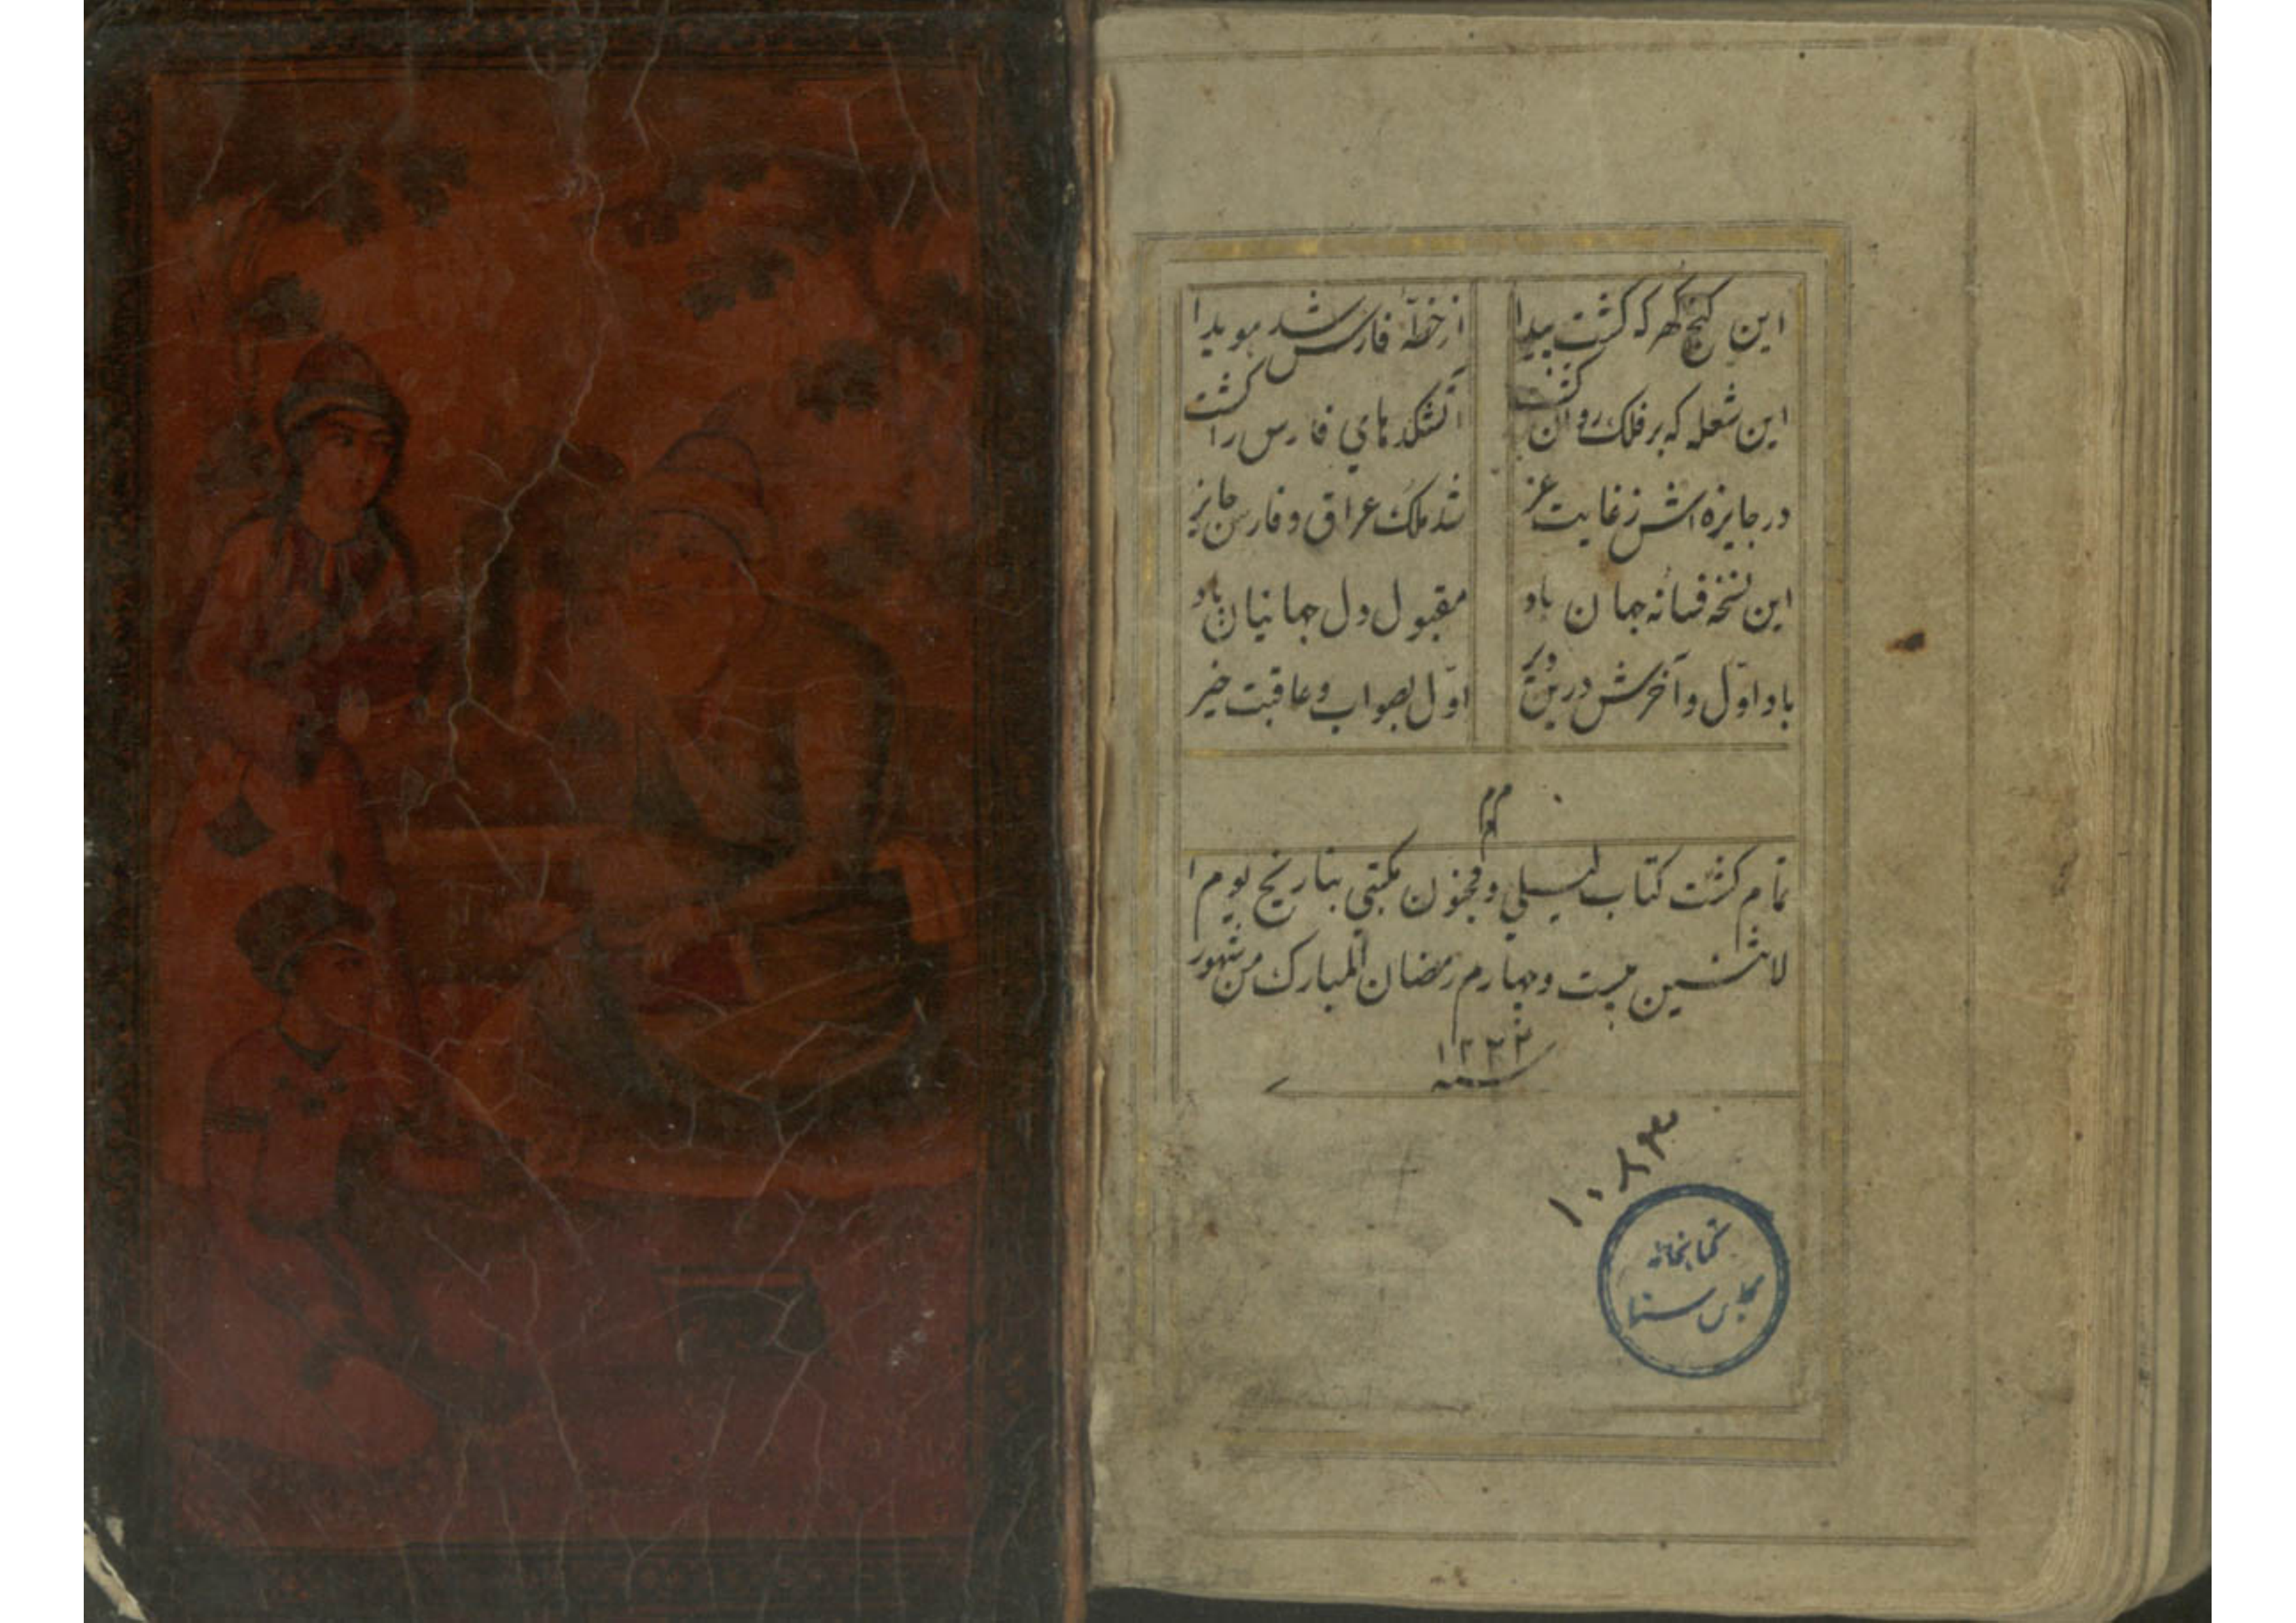 این گنج گهر که گشت پیدا از خطّه فارس شد هویدا
این شعله که بر فلک روان گشت آتشکدهای فارس را گشت
در جایزه اش ز غایت عز شد ملک عراق و فارس جایز
این نسخه فسانه جهان باد مقبول دل جهانیان باد
باد اوّل و آخرش درین دیر اوّل بصواب و عاقبت خیر
تمام گشت کتاب لیلی و مجنون مکتبی بتاریخ یوم ا
لاثنین بیست و چهارم رمضان المبارک من شهور
سنه ۱۲۲۲
۱۰۸۴۳
کتابخانه
مجلس سنا